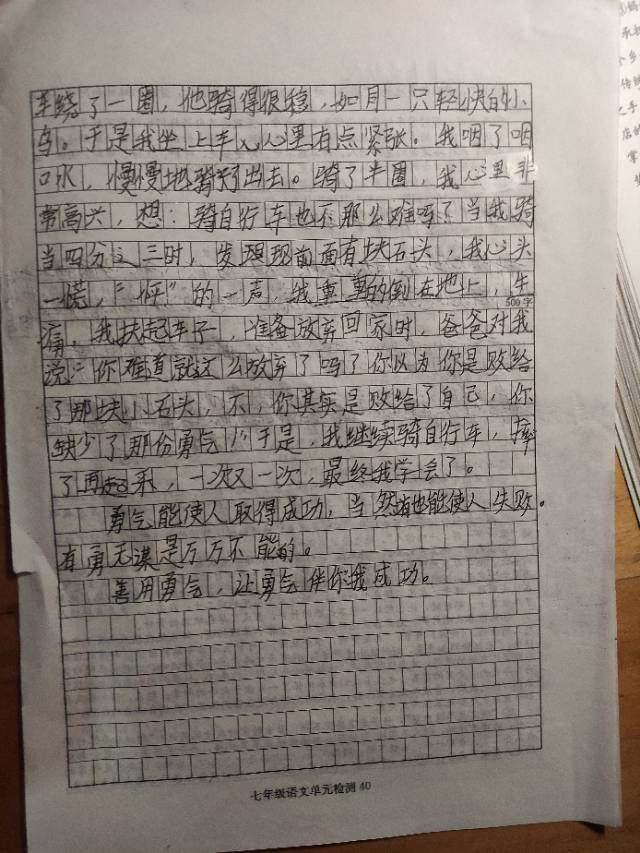 车绕了一圈，他骑得很稳，如同一只轻快的小
鸟。于是我坐上车，心里有点紧张。我咽了咽
口水，慢慢地骑了出去。骑了半圈，我心里非
常高兴，想：骑自行车也不那么难吗？当我骑
当四分之三时，发现现前面有块石头，我心头
一慌，“怦”的一声，我重重的倒在地上，生
500字
痛。我扶起车子，准备放弃回家时，爸爸对我
说：“你难道就这么放弃了吗？你以为你是败给
了那块小石头，不，你其实是败给了自己，你
缺少了那份勇气！”于是，我继续骑自行车，摔
了再起来，一次又一次，最终我学会了。
勇气能使人取得成功，当然有也能使人失败。
有勇无谋是万万不能的。
善用勇气，让勇气伴你我成功。
七年级语文单元检测40